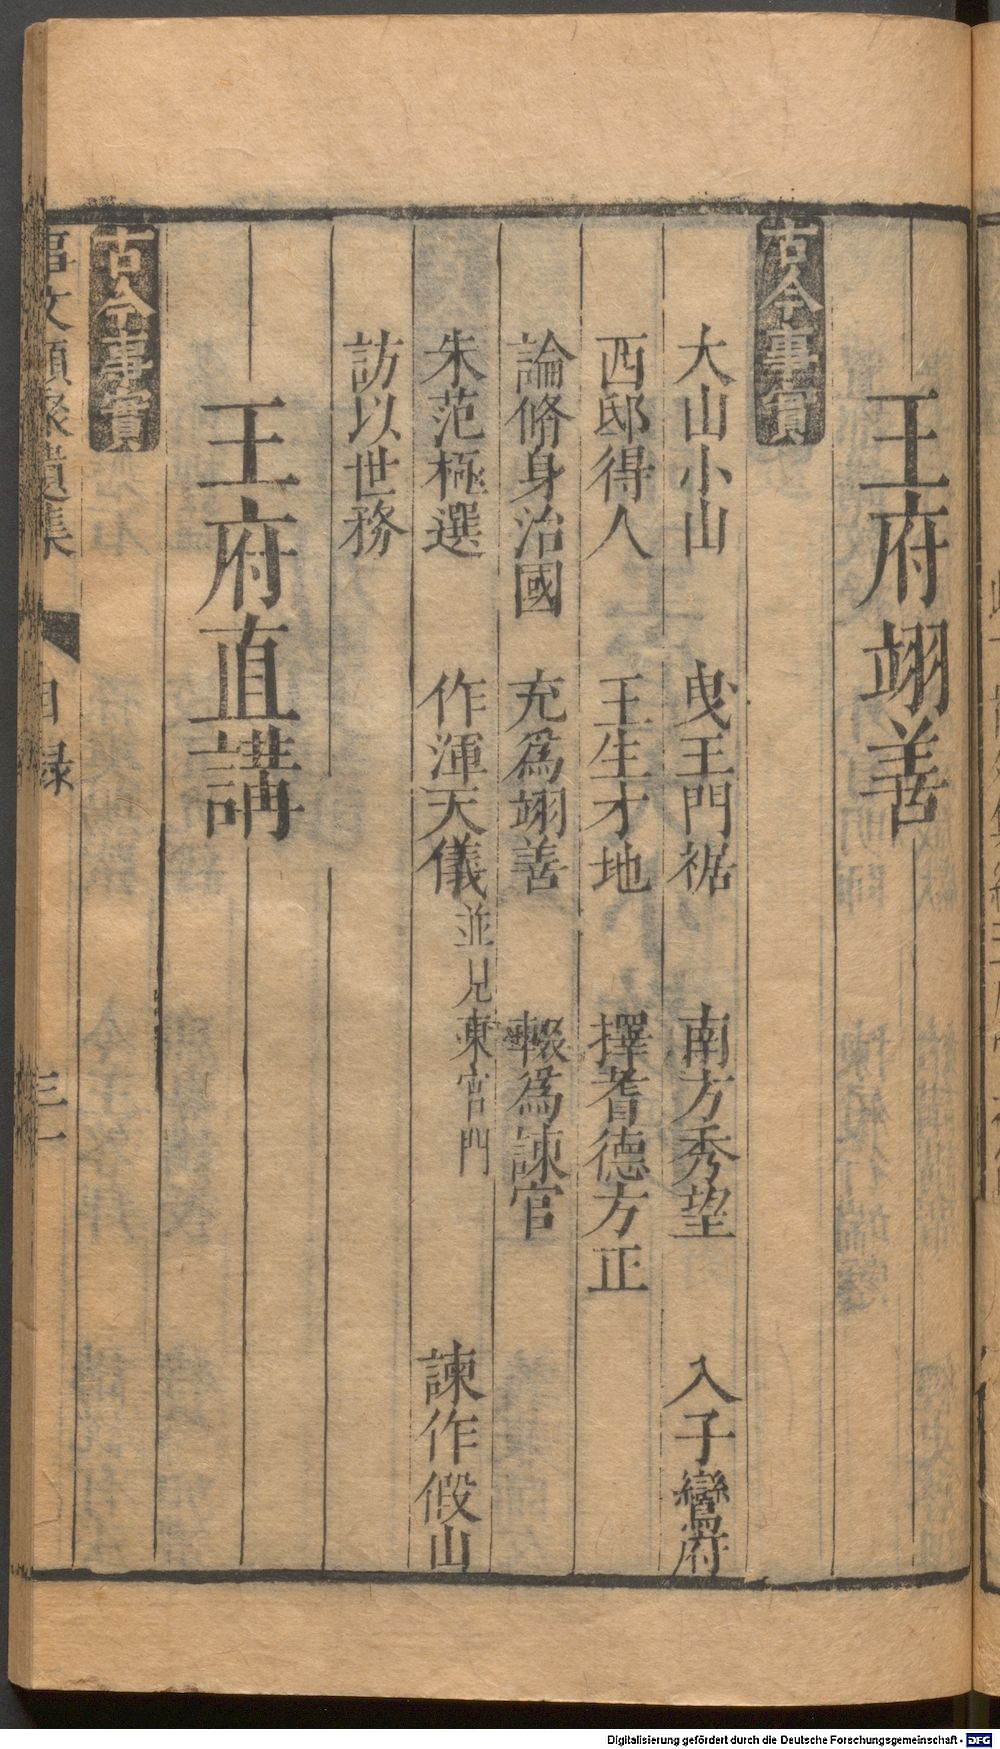 王府翊善
古今事實
大山小山　曳王門裾　南方秀望　入子鸞府
西邸得人　王生才地　擇耆德方正
論脩身治國　充爲翊善　輟爲諫官
朱范極選　作渾天儀並見東宮門　諫作假山
訪以世務
王府直講
古今事實
事文類聚遺集　目録　三一
Digitalisierung gefördert durch die Deutsche Forschungsgemeinschaft - DFG